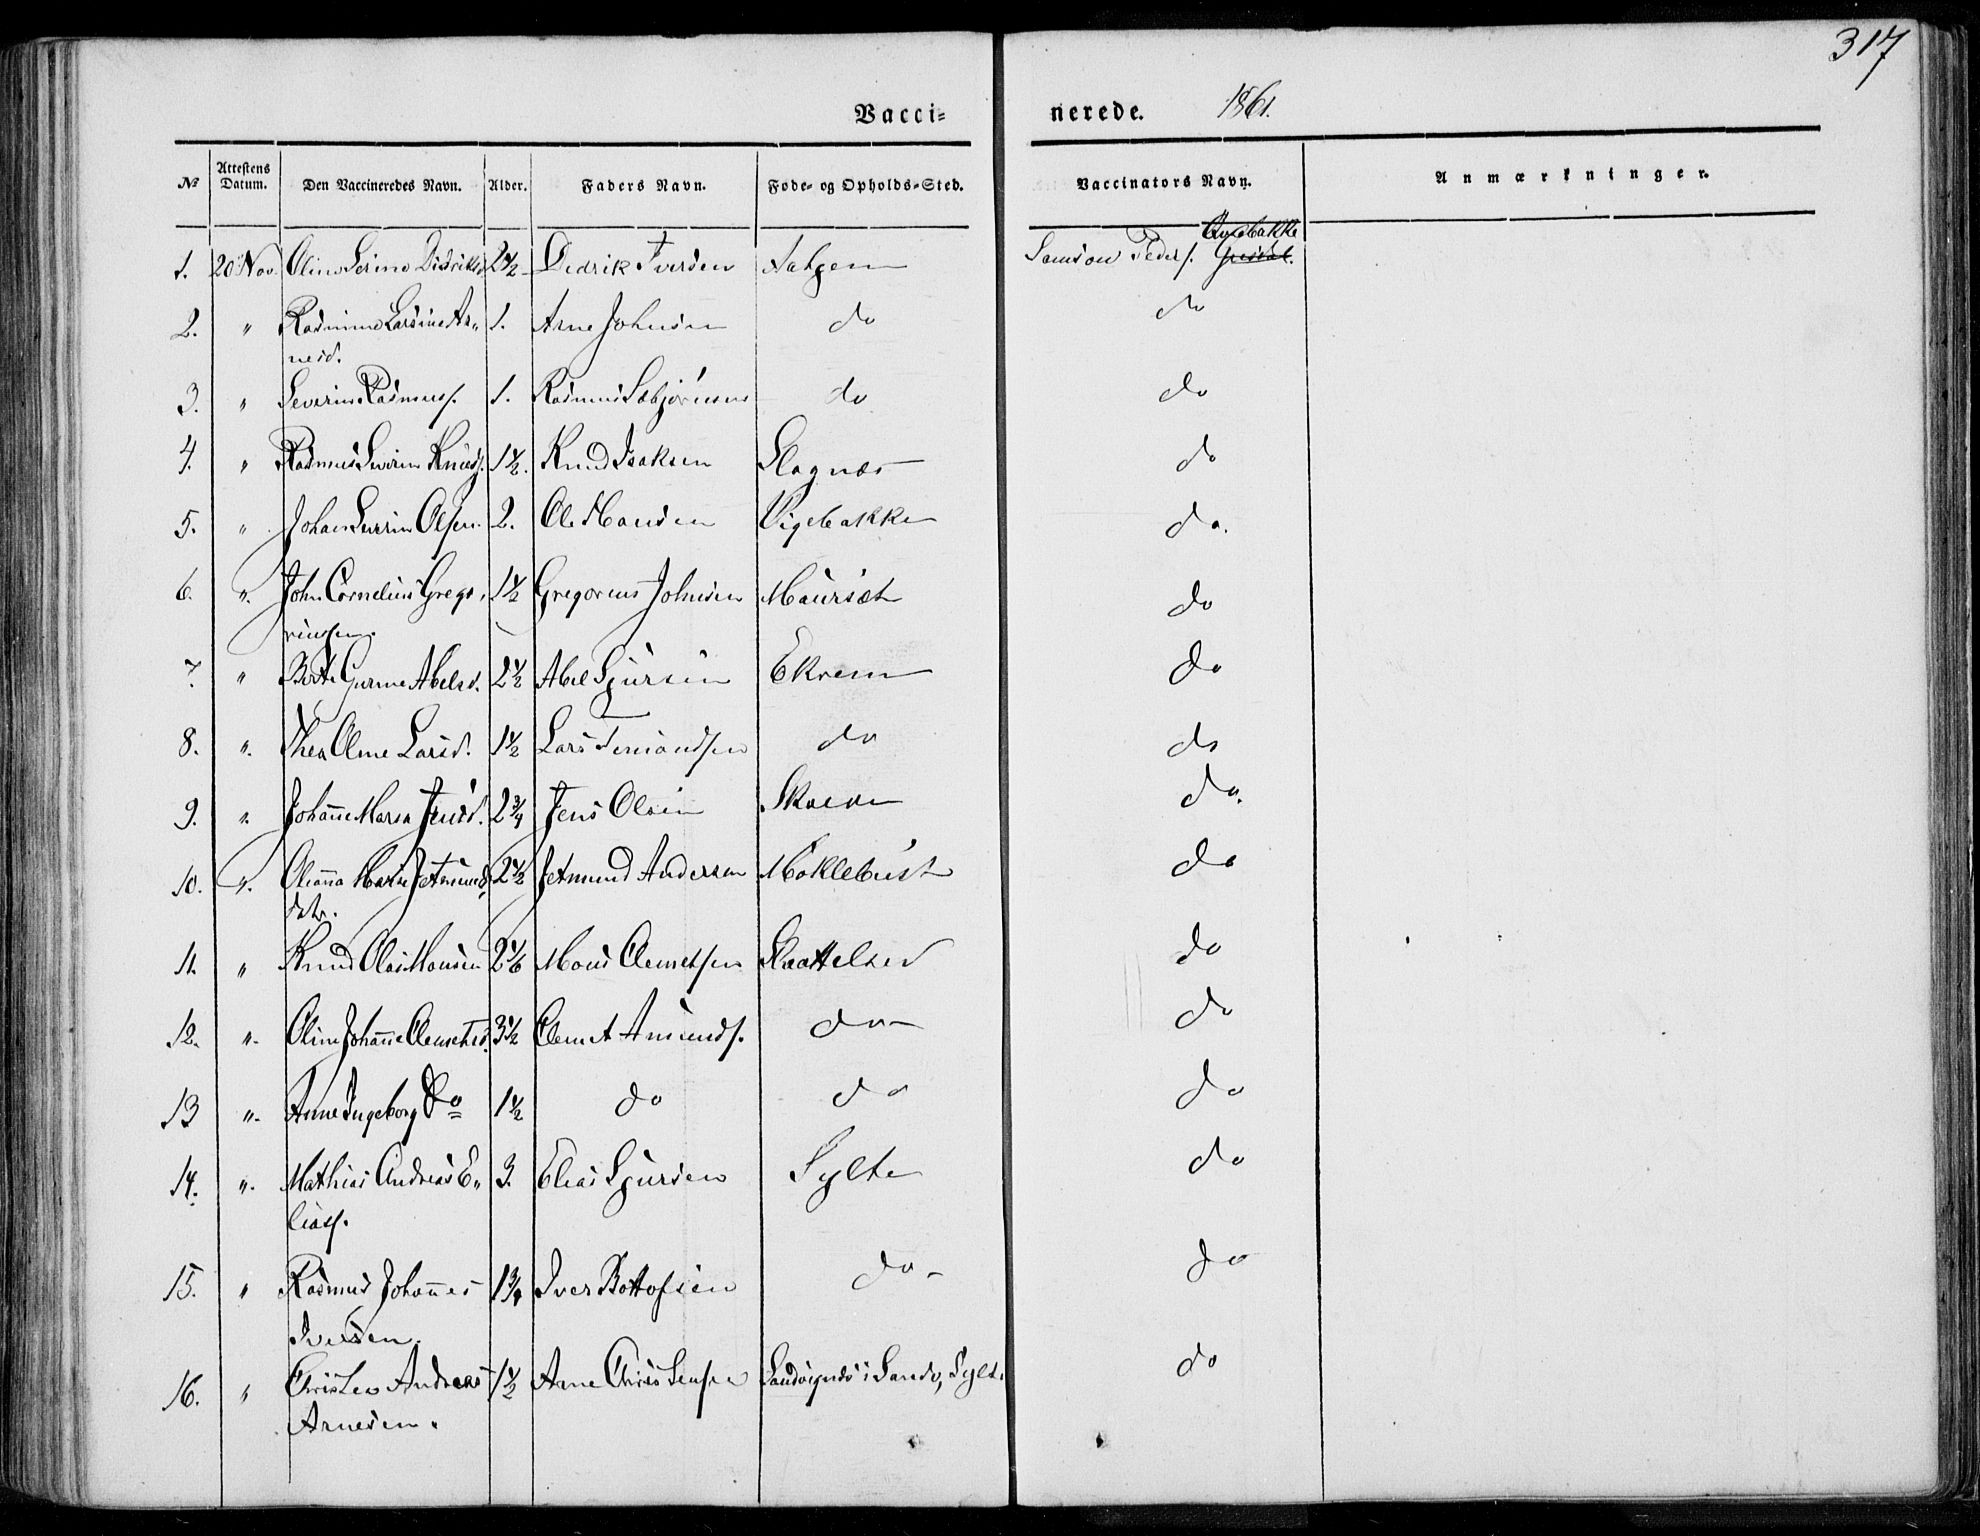 317
Vacci- nerede. 1861.
№ Attestens Datum. Den Vaccineredes Navn. Alder. Faders Navn. Føde- og Opholds-Sted. Vaccinators Navn. Anmærkninger.
1. 20 Nov. Oline Serine Didriksd 2½ Didrik Iversen Aahjem Samson Peders.
2. " Rasmine Larsine Ar„ 1. Arne Johnsen do do
nesd.
3. " Severin Rasmuss. 1. Rasmus Sæbjørnsen do do
4. " Rasmus Severin Knuds. 1½. Knud Isaksen Slagnæs do
5. " Johan Severin Olsen. 2. Ole Hansen Vigebakke do.
6. ". John Cornelius Grego„ 1½ Gregorius Johnsen Maurset do
riussen.
7. " Berte Gurine Abelsd. 2½ Abel Sjursen Ekrem do
8. ". Thea Oline Larsd. 1½ Lars do do
9. ". Johanne Maria Jensd. 2¾ Jens Olsen do.
10. ". Olianna Marie Jetmund„ 2½ Jetmund Andersen Moklebust do
datr.
11. " Knud Olai Monsen 2⅙ Mons Clemetsen Slaattelied do
12. ". Oline Johanne Clemetsd. 3½ Clemet Amunds. do – do
13 ". Anne Ingeborg do 1½ do do do
14. ". Mathias Andreas E„ 3. Elias Sjursen Sylte do
liass.
15. " Rasmus Johannes 1¾ Iver Bottofsen do – do
Iversen.
16. " Christen Andreas 1½ Arne Christensen i Sande, Sylte do
Arnesen.